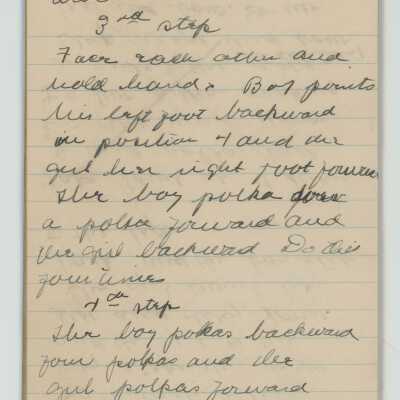 3rd step
Face each other and
hold hands Boy points
his left foot backward
in position 4 and the
girl her right foot forward
The boy polka does
a polka forward and
the girl backward Do this
four times
4th step
The boy polkas backward
four polkas and the
girl polkas forward